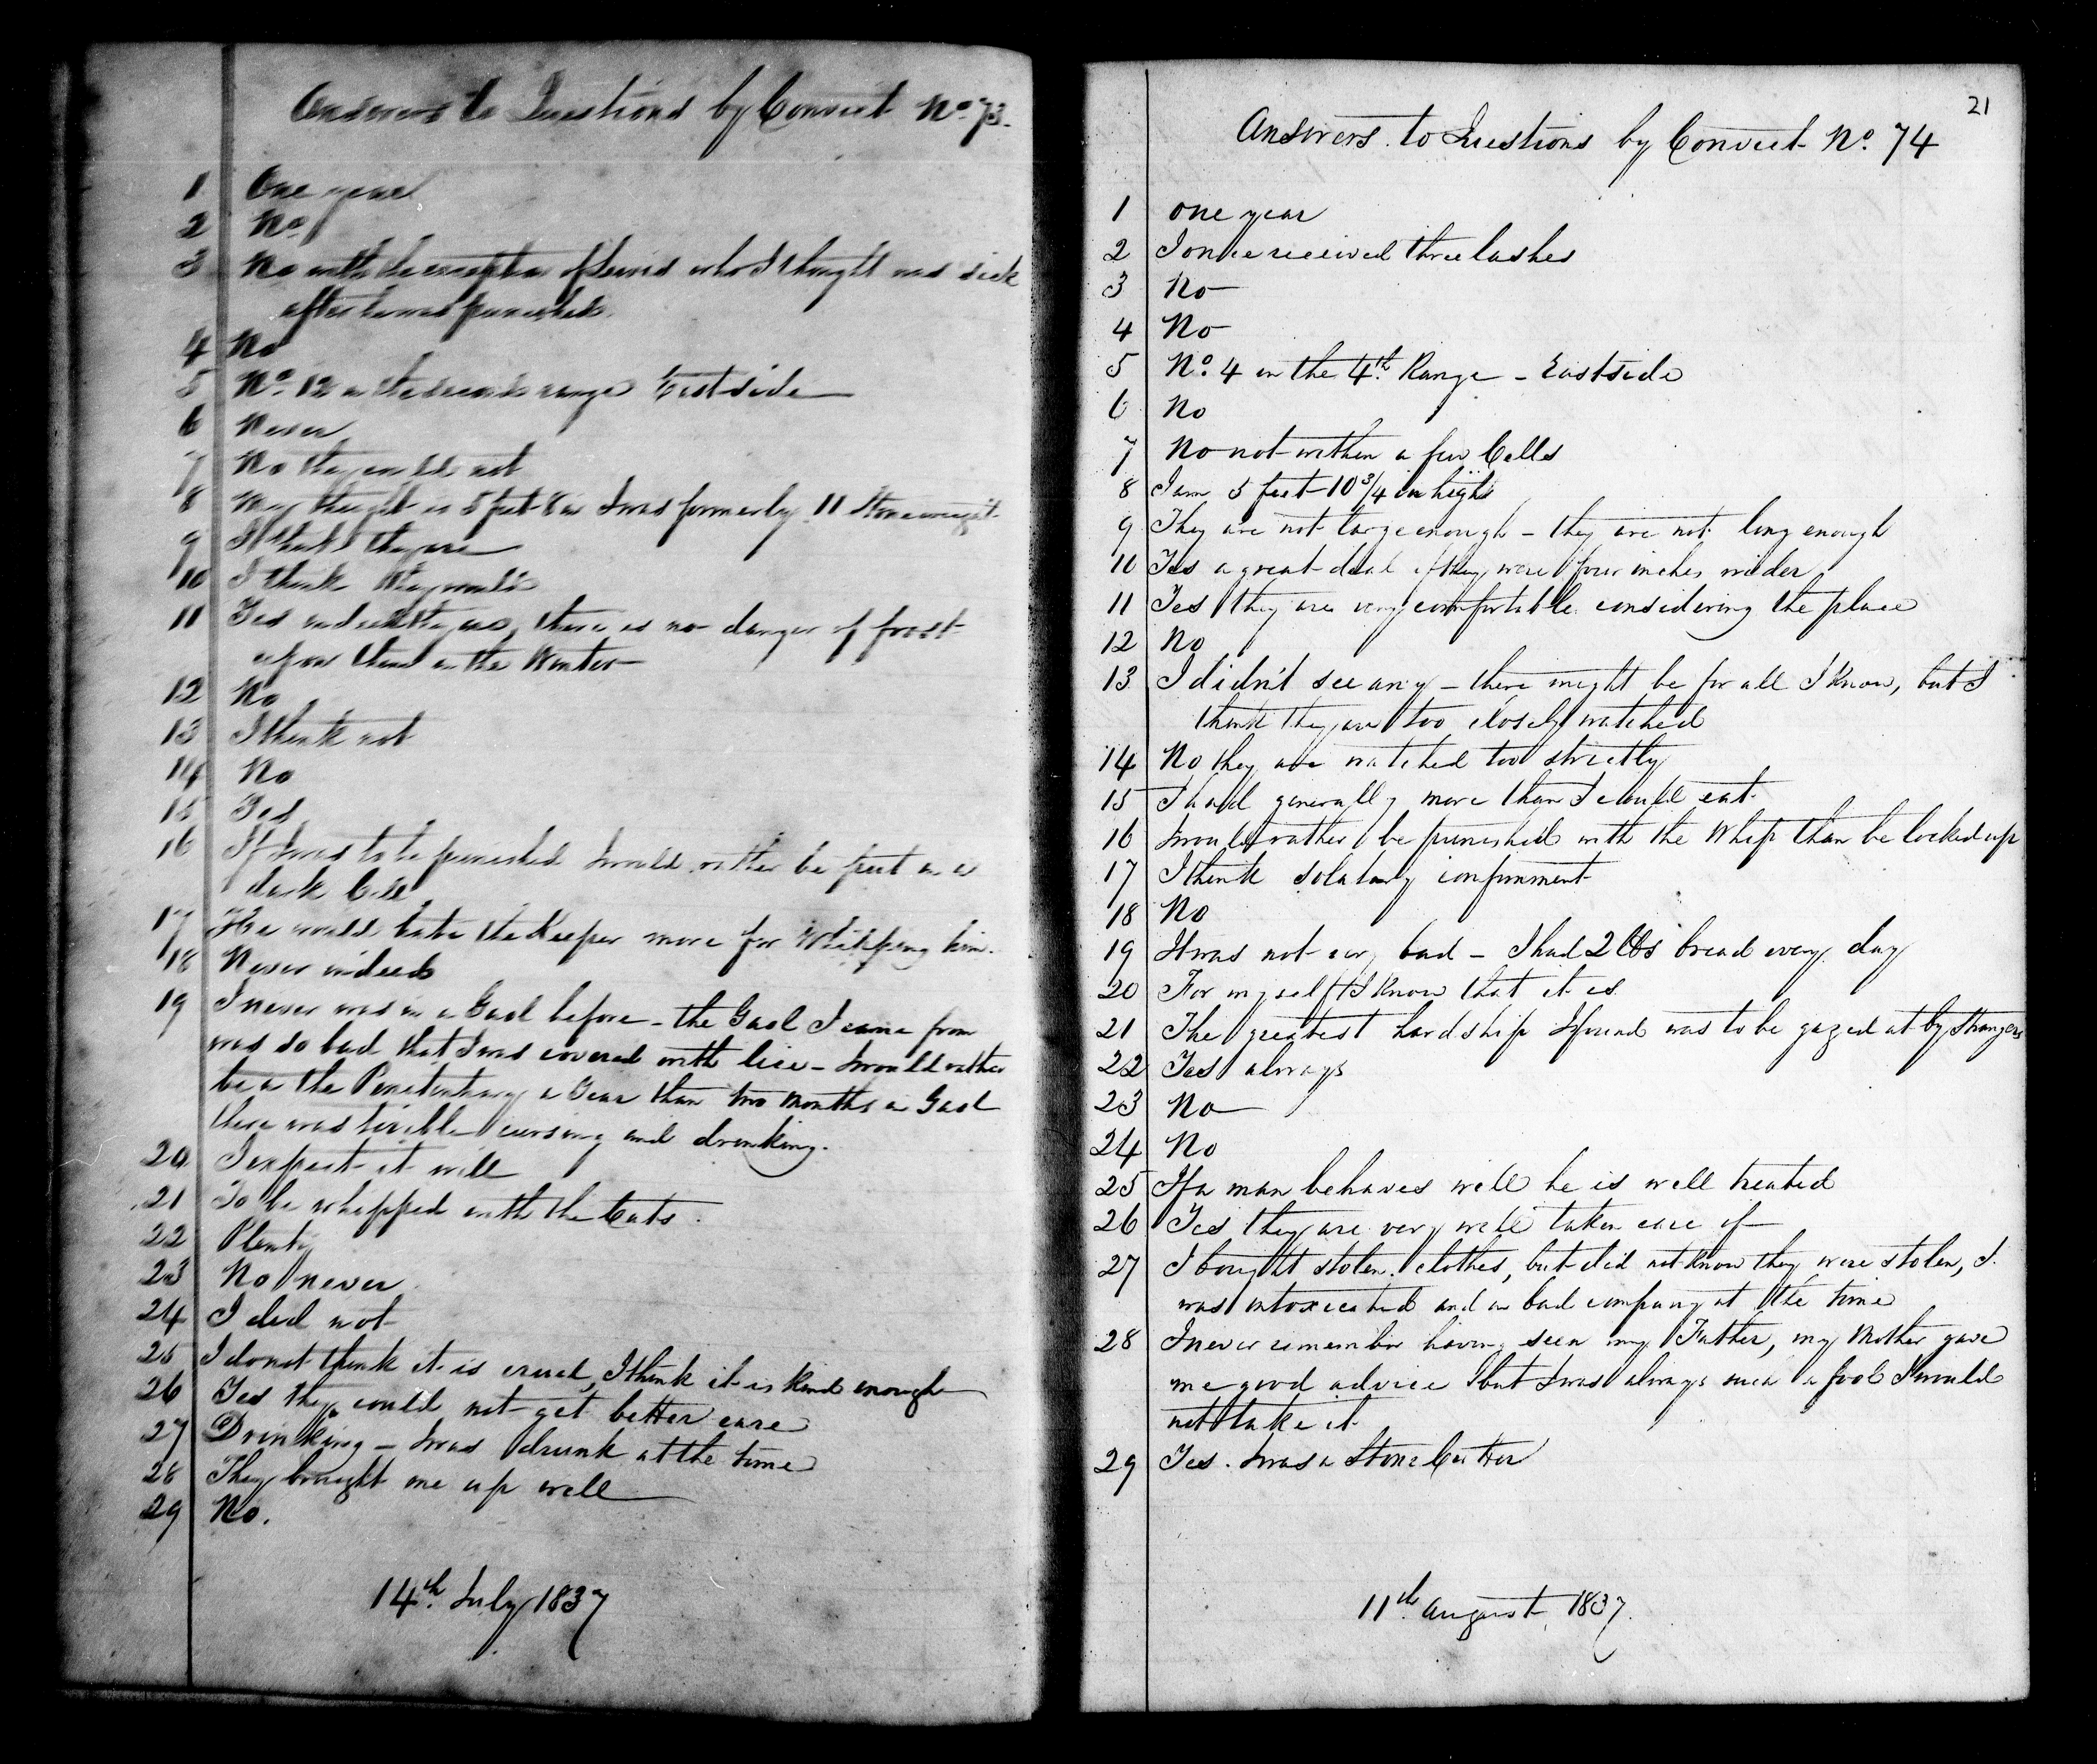 Answers to Questions by Convict No. 73.
1 One year
2 No
3 No with the exception of Lewis who I thought was sick
after he was punished.
4 No
5 No. 12 in the second range East side
6 Never
7 No they could not
8 My height is 5 feet 8 in I was formerly 11 Stone weight
9 I think they are
10 I think they would
11 Yes indeed they are, there is no danger of frost
upon them in the Winter
12 No
13 I think not
14 No
15 Yes
16 If I was to be punished I would rather be put in a
dark Cell
17 He would hate the Keeper more for Whipping him.
18 Never indeed
19 I never was in a Gaol before - the Gaol I came from
was so bad that I was covered with lice - I would rather
be in the Penitentiary a Year than two Months in Gaol
there was terrible cursing and drinking.
20 I expect it will
21 To be whipped with the Cats.
22 Plenty
23 No never
24 I did not
25 I do not think it is cruel, I think it is kind enough
26 Yes they could not get better care
27 Drinking - I was drunk at the time
28 They brought me up well
29 No.
14th. July 1837
21
Answers to Questions by Convict No. 74
1 one year
2 I once received three lashes
3 No
4 No
5 No. 4 in the 4th. Range - East side
6 No
7 No not within a few Cells
8 I am 5 feet 10 3/4 in high
9 They are not large enough - they are not long enough
10 Yes a great deal if they were four inches wider
11 Yes they are very comfortable considering the place
12 No
13 I didn't see any - there might be for all I know, but I
think they are too closely watched
14 No they are watched too strictly
15 I had generally more than I could eat
16 I would rather be punished with the Whip than be locked up
17 I think solatary confinment
18 No
19 It was not very bad - I had 2 lbs bread every day
20 For myself I know that it is
21 The greatest hardship I found was to be gazed at by Strangers
22 Yes always
23 No
24 No
25 If a man behaves well he is well treated
26 Yes they are very well taken care of
27 I bought stolen clothes, but did not know they were stolen, I
was intoxicated and in bad company at the time
28 I never remember having seen my Father, my Mother gave
me good advice but I was always such a fool I would
not take it
29 Yes. I was a Stone Cutter
11th. August, 1837.